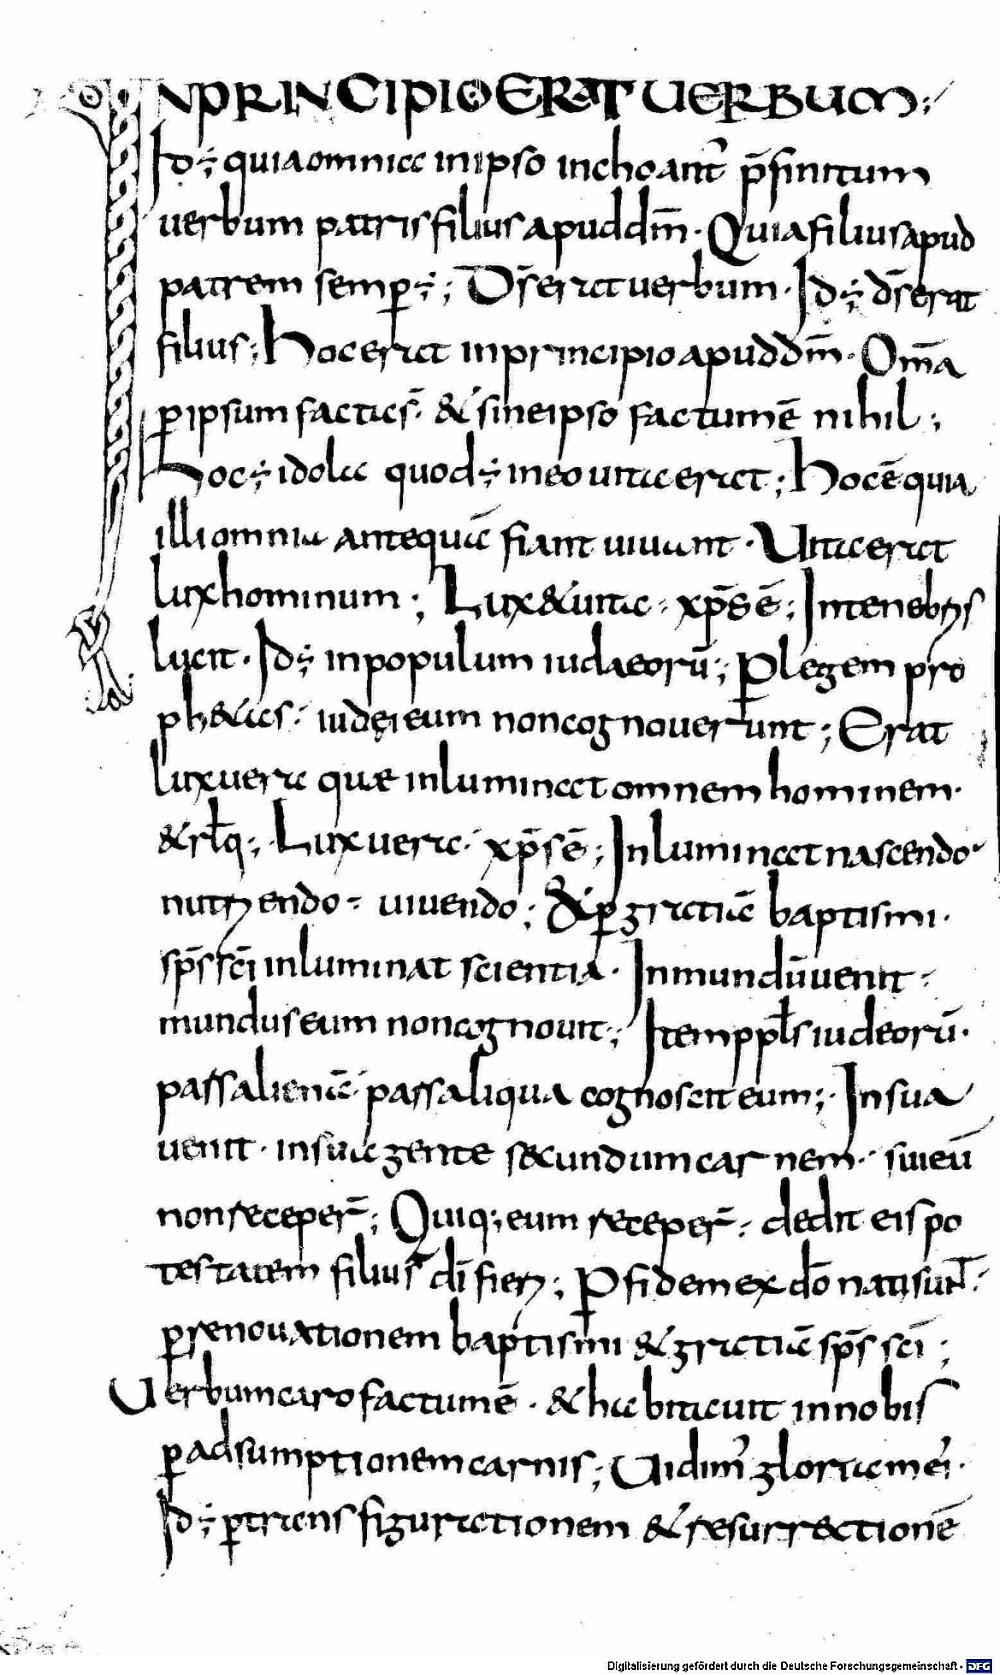 INPRINCIPIO ERAT UERBUM;
Id÷ quia omnia in ipso inchoant᷒ p̄finitum
uerbum patris filius apud dm̄· Quia filius apud
patrem semp÷; DS̄ erat uerbum· Id÷ dS̄ erat
filius; Hoc erat in principio apud dm̄· Om̄a
ꝑ ipsum facta s̄· & sine ipso factum ē nihil;
Hoc÷ idola quod÷ in eo uita erat; Hoc ē quia
illi omnia antequā fiant uiuunt· Uita erat
lux hominum; Lux & uita· xp̄s ē; In tenebris
lucit· Id÷ in populum iudaeorū; Ꝑ legem pro
ph&as· iudęi eum non cognouerunt; Erat
lux uera quæ inluminat omnem hominem·
& rl̄q; Lux uera· xp̄s ē; Inluminat nascendo·
nutriendo· uiuendo; & ꝑ gratiā baptismi·
sp̄s sc̄i inluminat scientia· In mundū uenit·
mundus eum non cognouit; Item ppl̄s iudeorū·
pars alienā· pars aliqua cognoscit eum; In sua
uenit· in sua gente secundum carnem· sui eū
non receper̄; Quiq; eum receper̄· dedit eis po
testatem filius dī fieri; Ꝑ fidem ex dō nati sunt̄·
ꝑ renouationem baptismi & gratiā sp̄s sc̄i;
Uerbum caro factum ē· & habitauit in nobis
ꝑ adsumptionem carnis; Uidim᷒ gloriam ei᷒·
Id÷ ꝑ transfigurationem & resurrectionē
Digitalisierung gefördert durch die Deutsche Forschungsgemeinschaft - DFG